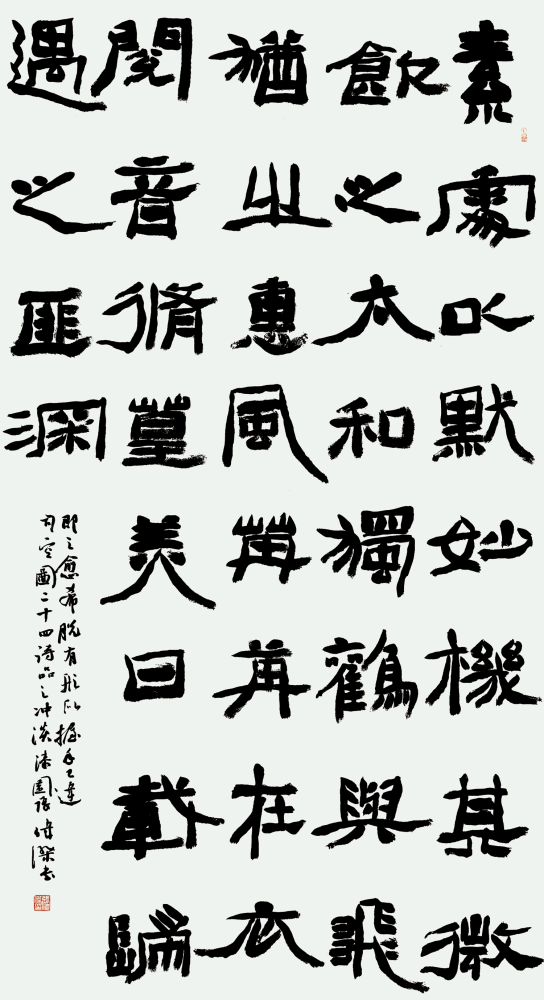 素處以默妙機其微
飲之太和獨鶴與飛
猶之惠風苒苒在衣
閱音脩篁美曰載歸
遇之匪深
即之愈希脱有形似握手已違
司空圖二十四詩品之冲淡漆園